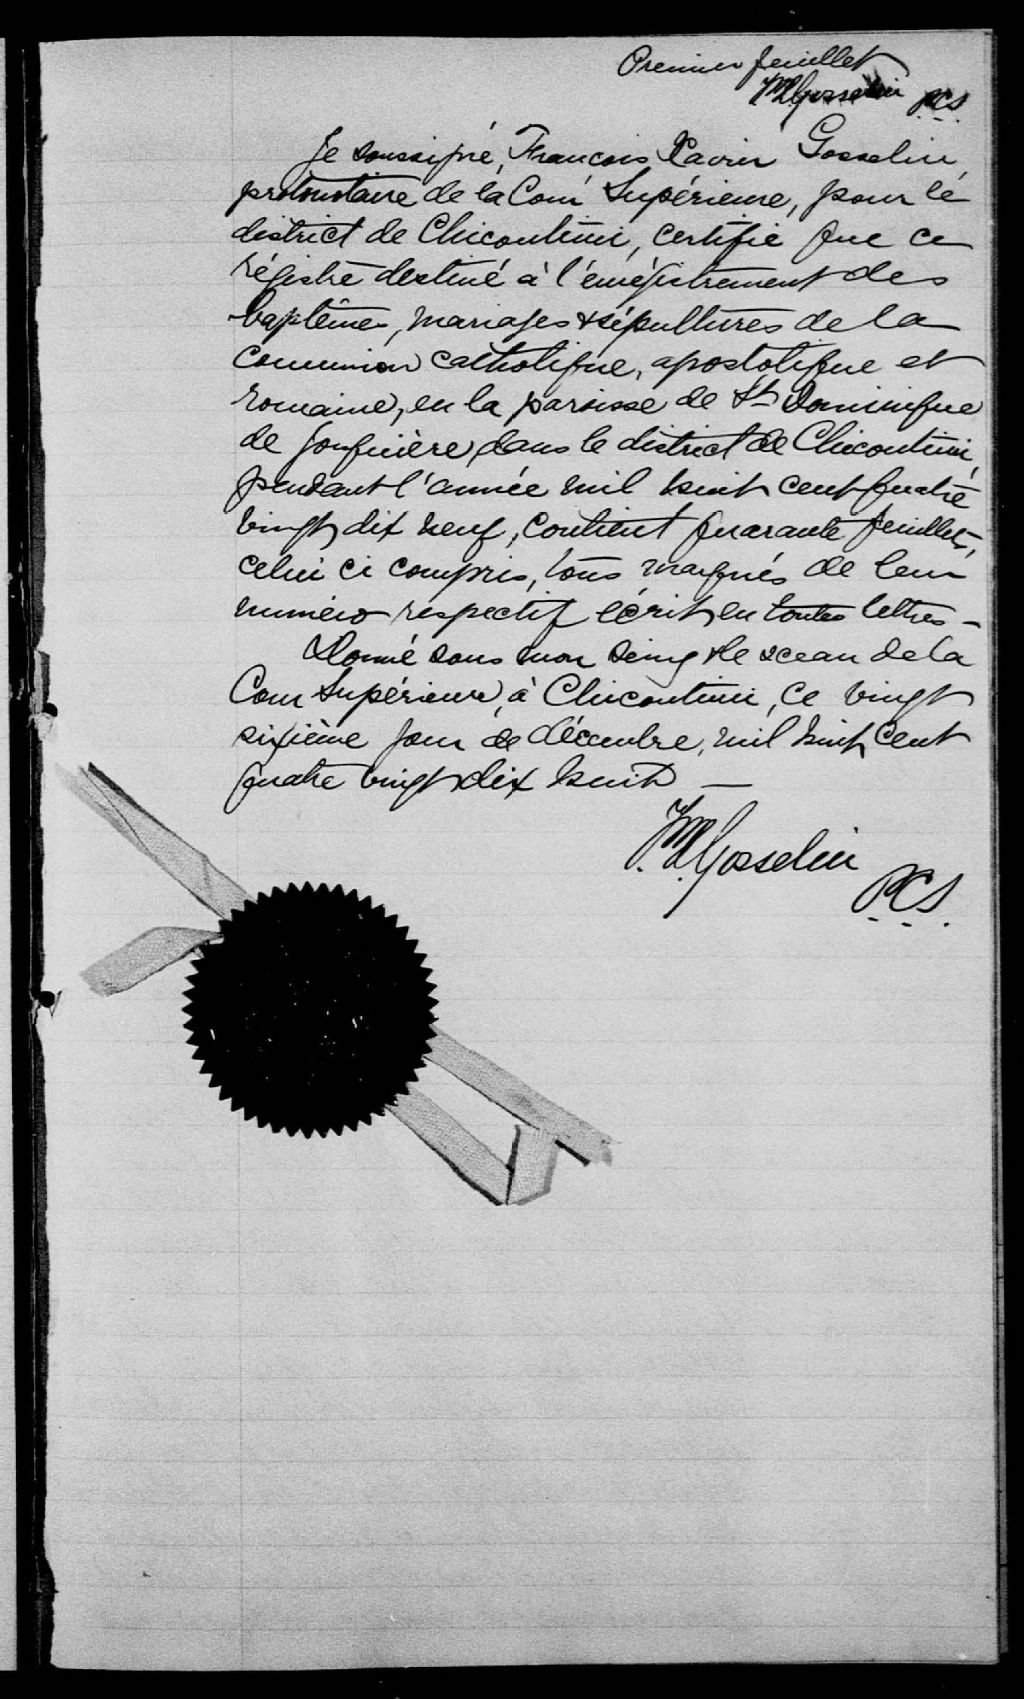 Premier feuillet
FX Gosselin PCS
Je soussigné, François Xavier Gosselin,
protonotaire de la Cour Supérieure, pour le
district de Chicoutimi, certifie que ce
régistre destiné à l'enrégistrement des
baptêmes, mariages & sépultures de la
communion catholique, apostolique et
romaine, en la paroisse de St Dominique
de Jonquière, dans le district de Chicoutimi,
pendant l'année mil huit cent quatre
vingt dix neuf, contient quarante feuillets,
celui ci compris, tous marqués de leur
numéro respectif écrit en toutes lettres –
Donné sous mon seing & le sceau de la
Cour Supérieure, à Chicoutimi, ce vingt
sixième jour de décembre, mil huit cent
quatre vingt dix huit —
FX Gosselin
P.C.S.